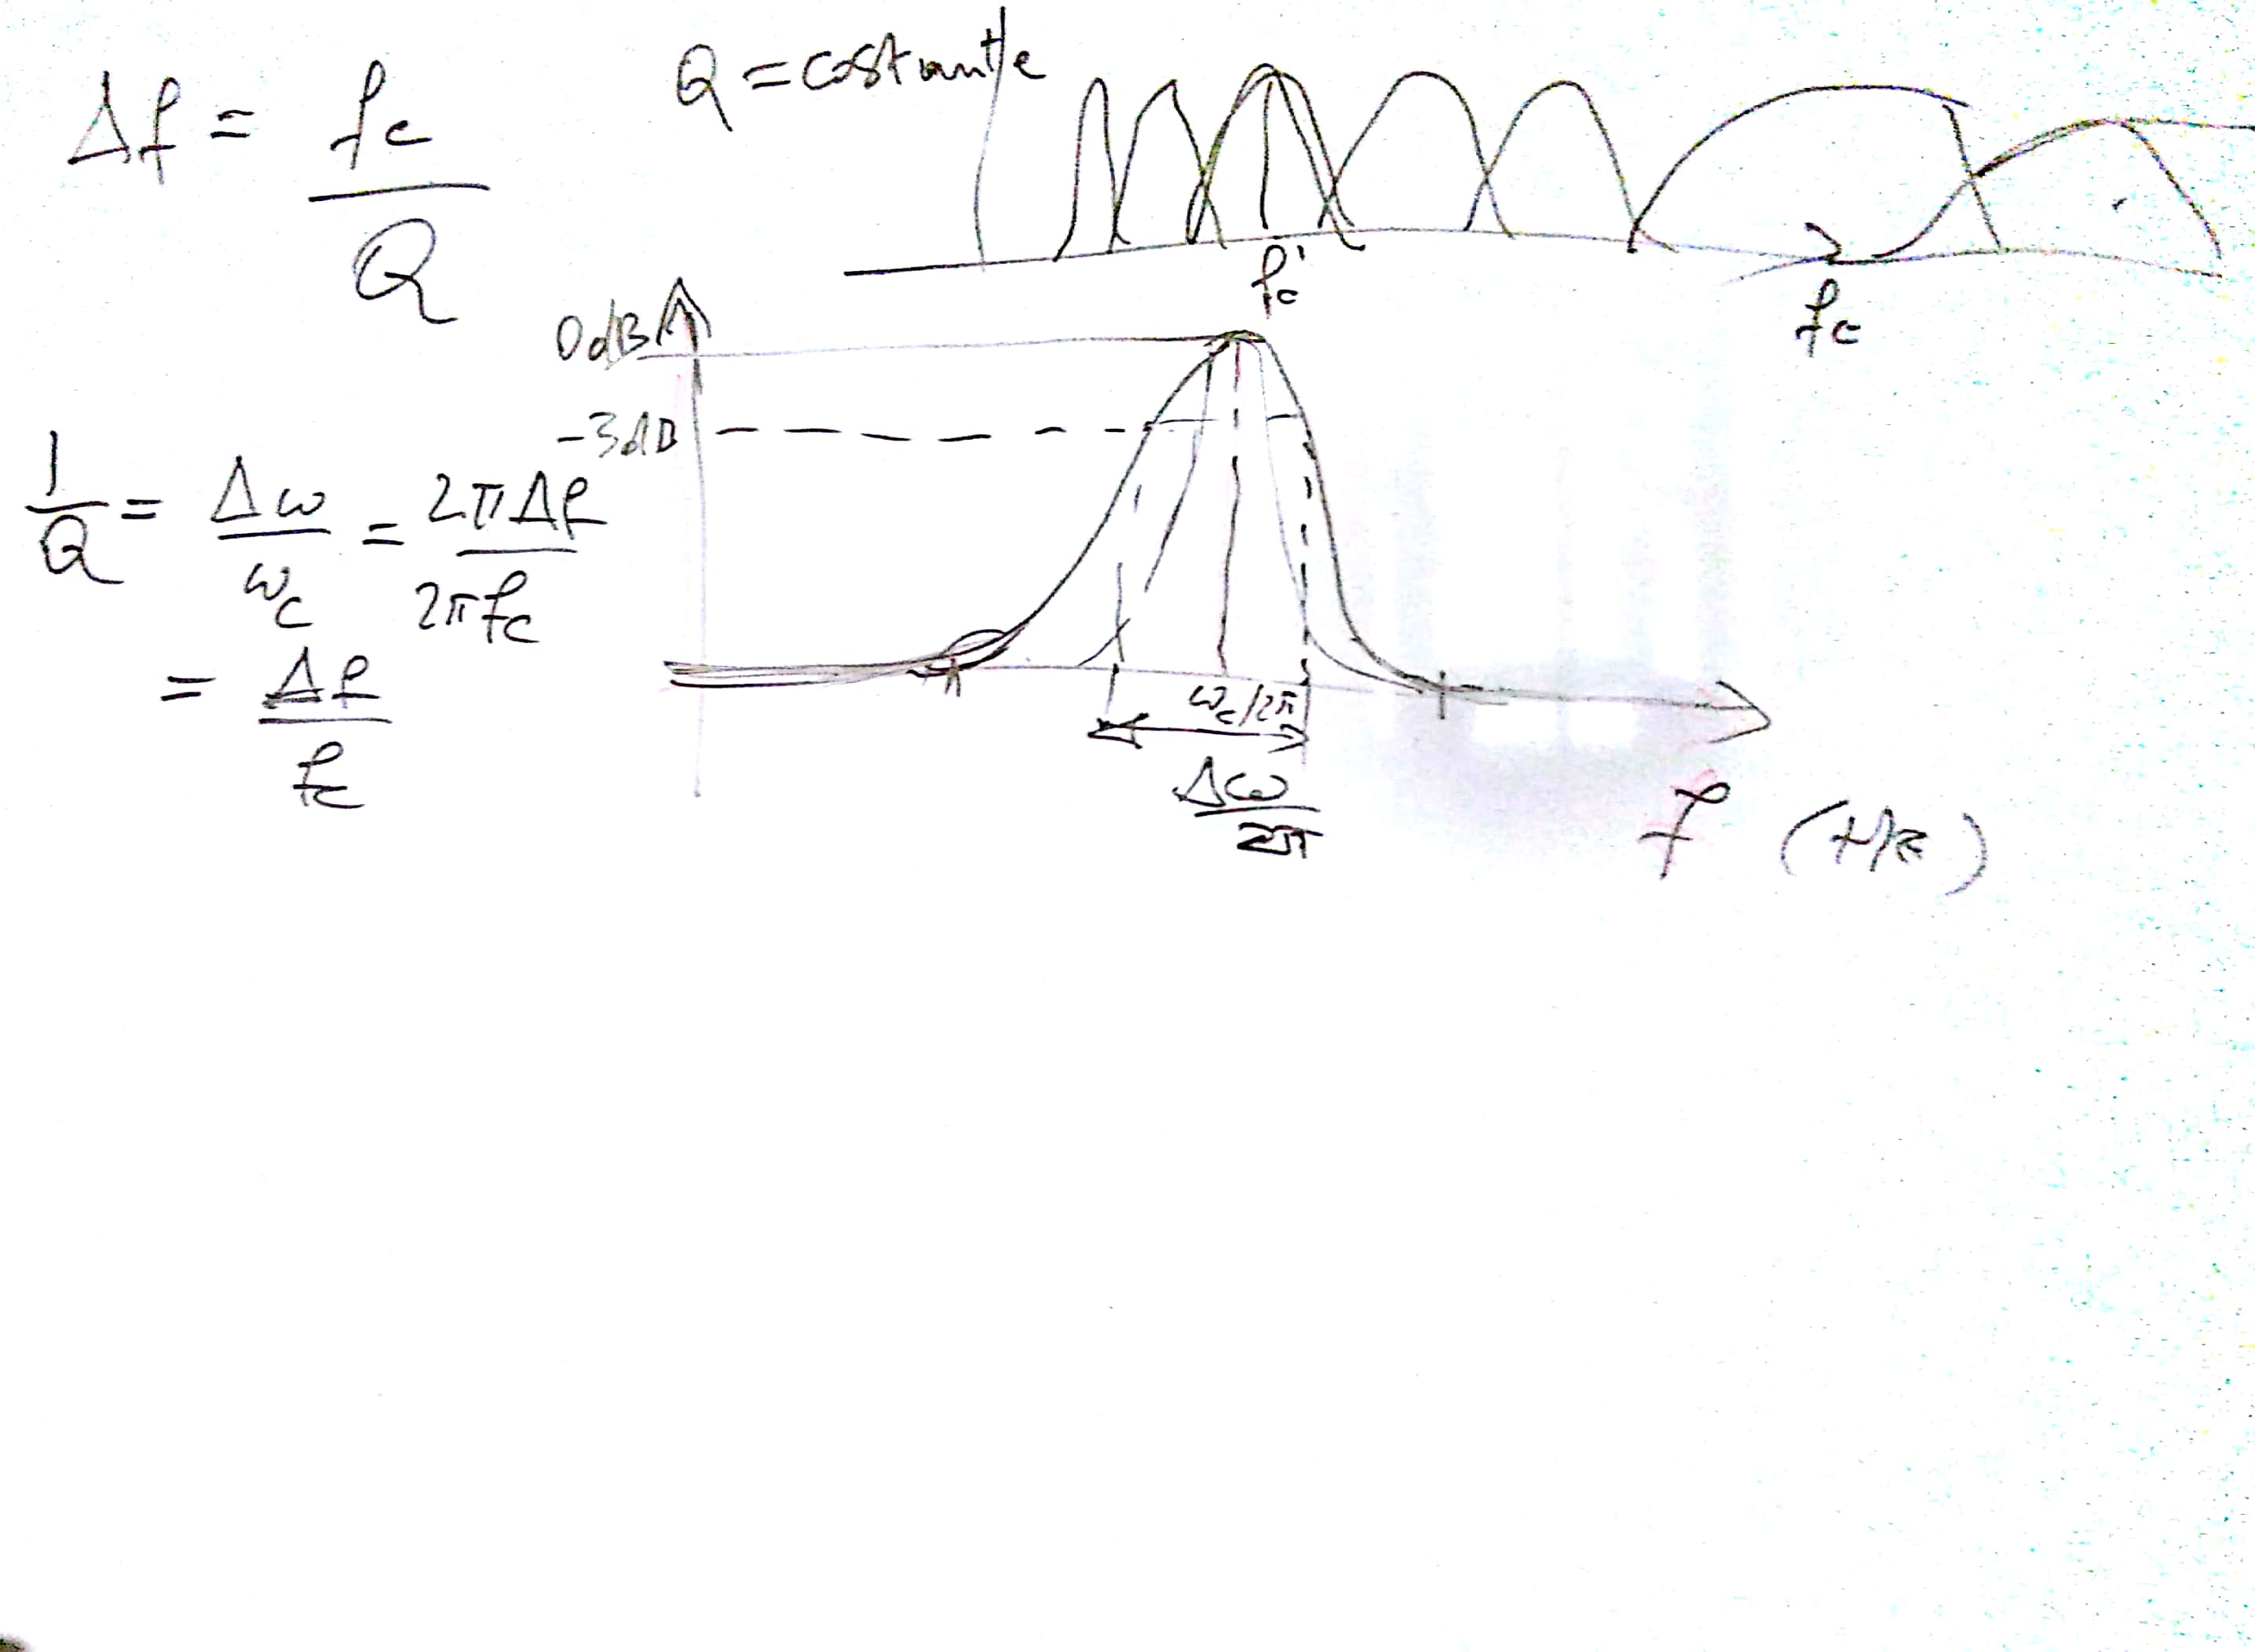 Δf = fc / Q
Q = costante
fc'
fc
0dB
-3dB
1/Q = Δω/ωc = 2πΔf/2πfc
= Δf/fc
ωc/2π
Δω/2π
f (Hz)